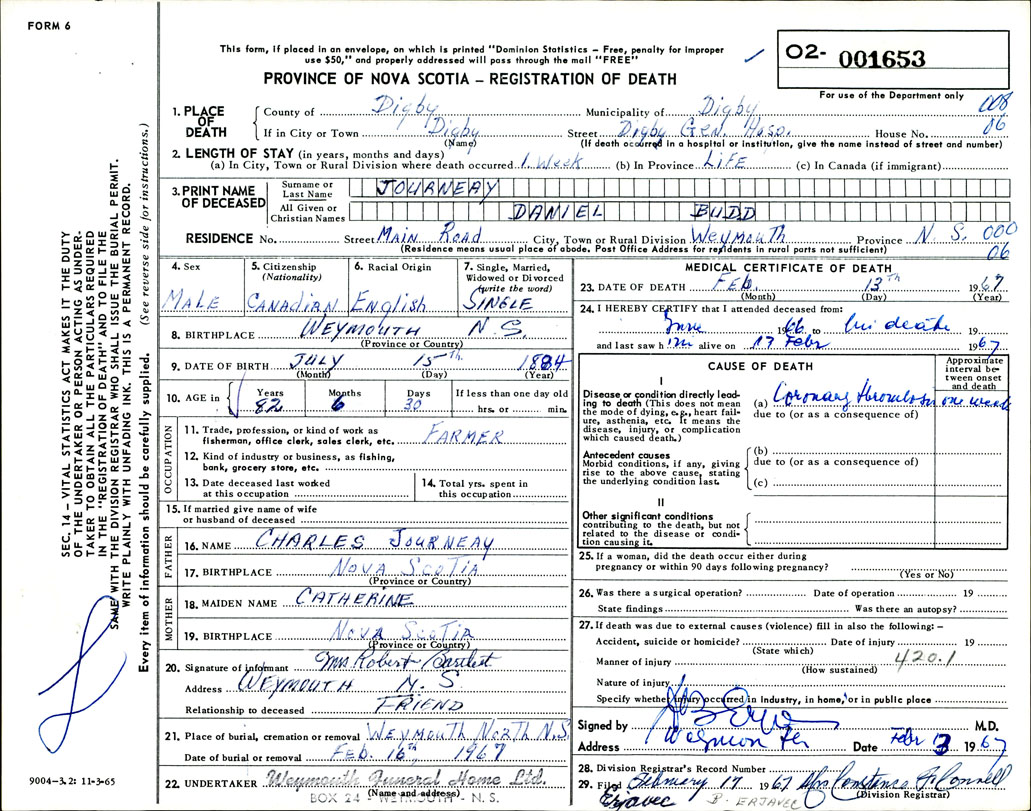 FORM 6
This form, if placed in an envelope, on which is printed "Dominion Statistics – Free, penalty for improper
use $50," and properly addressed will pass through the mail "FREE"
PROVINCE OF NOVA SCOTIA – REGISTRATION OF DEATH
02- 001653
For use of the Department only
008
06
1. PLACE OF DEATH
County of Digby Municipality of Digby
If in City or Town Digby Street Digby Gen. Hosp. House No.
(Name) (If death occurred in a hospital or institution, give the name instead of street and number)
2. LENGTH OF STAY (in years, months and days)
(a) In City, Town or Rural Division where death occurred 1 Week (b) In Province LIFE (c) In Canada (if immigrant)
3. PRINT NAME OF DECEASED
Surname or Last Name JOURNEAY
All Given or Christian Names DANIEL BUDD
RESIDENCE No. Street MAIN ROAD City, Town or Rural Division WEYMOUTH Province N. S. 000
(Residence means usual place of abode. Post Office Address for residents in rural parts not sufficient) 06
4. Sex MALE
5. Citizenship (Nationality) CANADIAN
6. Racial Origin English
7. Single, Married, Widowed or Divorced (write the word) SINGLE
8. BIRTHPLACE WEYMOUTH N.S.
(Province or Country)
9. DATE OF BIRTH JULY 15th 1884
(Month) (Day) (Year)
10. AGE in Years 82 Months 6 Days 30 If less than one day old hrs. or min.
OCCUPATION
11. Trade, profession, or kind of work as fisherman, office clerk, sales clerk, etc. FARMER
12. Kind of industry or business, as fishing, bank, grocery store, etc.
13. Date deceased last worked at this occupation
14. Total yrs. spent in this occupation
15. If married give name of wife or husband of deceased
FATHER
16. NAME CHARLES JOURNEAY
17. BIRTHPLACE NOVA SCOTIA
(Province or Country)
MOTHER
18. MAIDEN NAME CATHERINE
19. BIRTHPLACE NOVA SCOTIA
(Province or Country)
20. Signature of informant Mrs Robert Bartlett
Address WEYMOUTH N. S
Relationship to deceased FRIEND
21. Place of burial, cremation or removal WEYMOUTH NORTH N.S.
Date of burial or removal FEB. 16th, 1967
22. UNDERTAKER Weymouth Funeral Home Ltd.
(Name and address)
BOX 24 - WEYMOUTH - N. S.
MEDICAL CERTIFICATE OF DEATH
23. DATE OF DEATH FEB. 13th 1967
(Month) (Day) (Year)
24. I HEREBY CERTIFY that I attended deceased from:
June 1966 to his death 19
and last saw him alive on 13 Febr 1967
CAUSE OF DEATH
Approximate interval between onset and death
I
Disease or condition directly leading to death (This does not mean the mode of dying, e.g., heart failure, asthenia, etc. It means the disease, injury, or complication which caused death.)
(a) Coronary thrombosis one week
due to (or as a consequence of)
Antecedent causes
Morbid conditions, if any, giving rise to the above cause, stating the underlying condition last.
(b)
due to (or as a consequence of)
(c)
II
Other significant conditions
contributing to the death, but not related to the disease or condition causing it.
25. If a woman, did the death occur either during pregnancy or within 90 days following pregnancy?
(Yes or No)
26. Was there a surgical operation? Date of operation 19
State findings Was there an autopsy?
27. If death was due to external causes (violence) fill in also the following:–
Accident, suicide or homicide? Date of injury 19
(State which)
Manner of injury 420.1
(How sustained)
Nature of injury
Specify whether injury occurred in Industry, in home, or in public place
Signed by M.D.
Address Date Febr 1967
28. Division Registrar's Record Number
29. Filed February 17 1967 Mrs Constance O'Connell
(Division Registrar)
Erjavec B. ERJAVEC
SEC. 14 – VITAL STATISTICS ACT MAKES IT THE DUTY
OF THE UNDERTAKER OR PERSON ACTING AS UNDER-
TAKER TO OBTAIN ALL THE PARTICULARS REQUIRED
IN THE "REGISTRATION OF DEATH" AND TO FILE THE
SAME WITH THE DIVISION REGISTRAR WHO SHALL ISSUE THE BURIAL PERMIT.
WRITE PLAINLY WITH UNFADING INK. THIS IS A PERMANENT RECORD.
Every item of information should be carefully supplied. (See reverse side for instructions.)
9004-3.2: 11-3-65